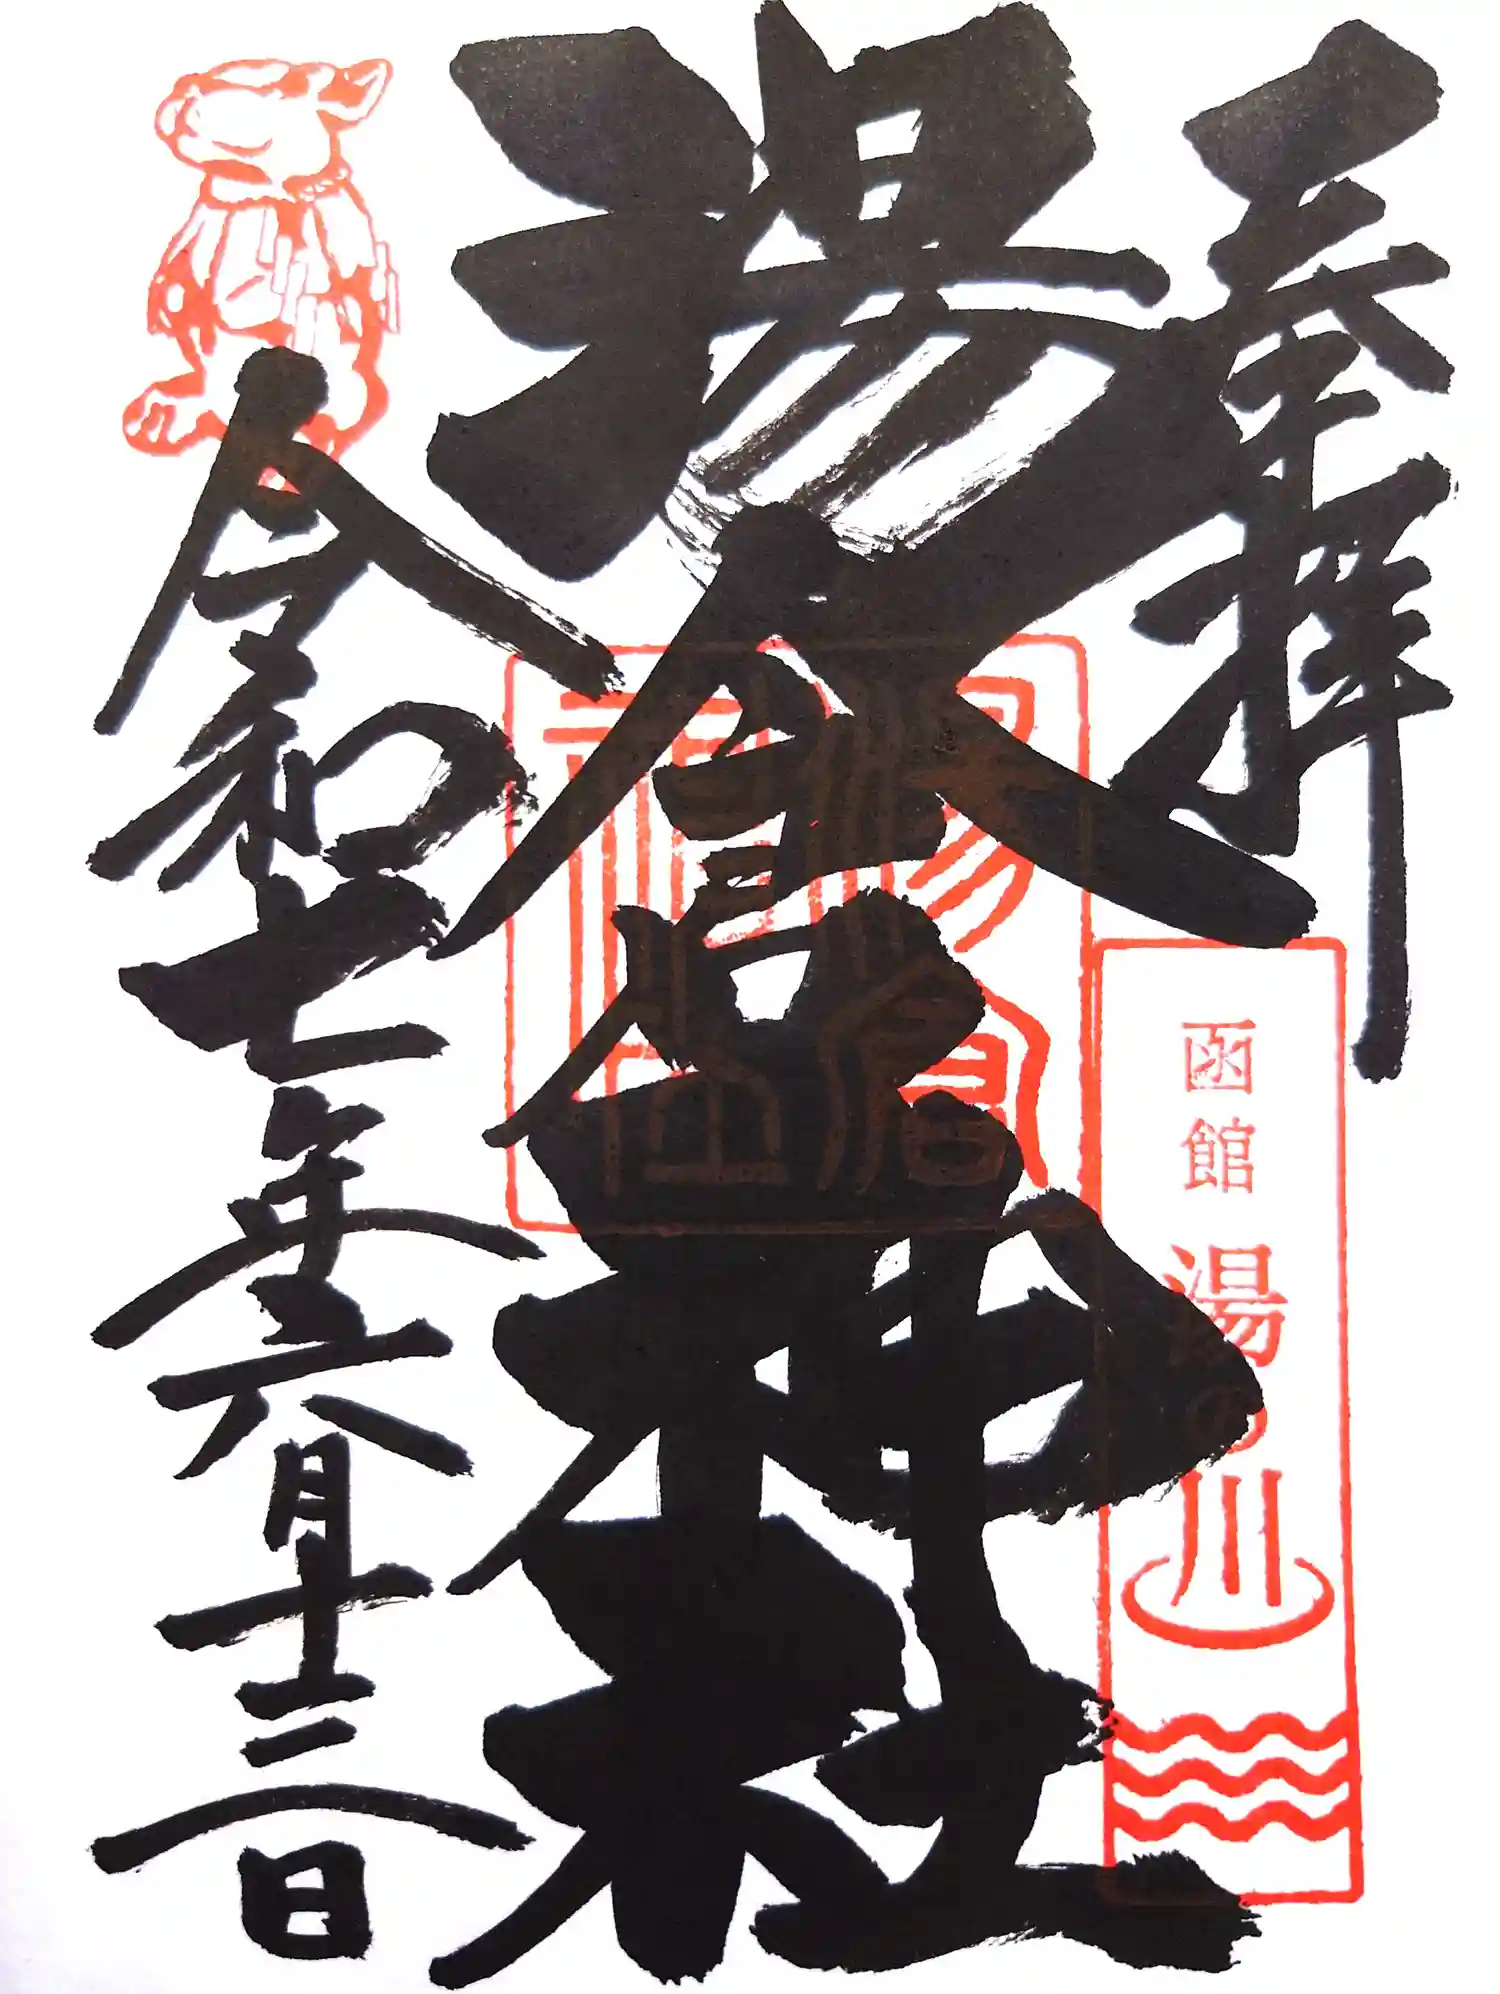 奉拝
函館 湯の川
湯倉神社
湯倉神社
令和七年六月十三日